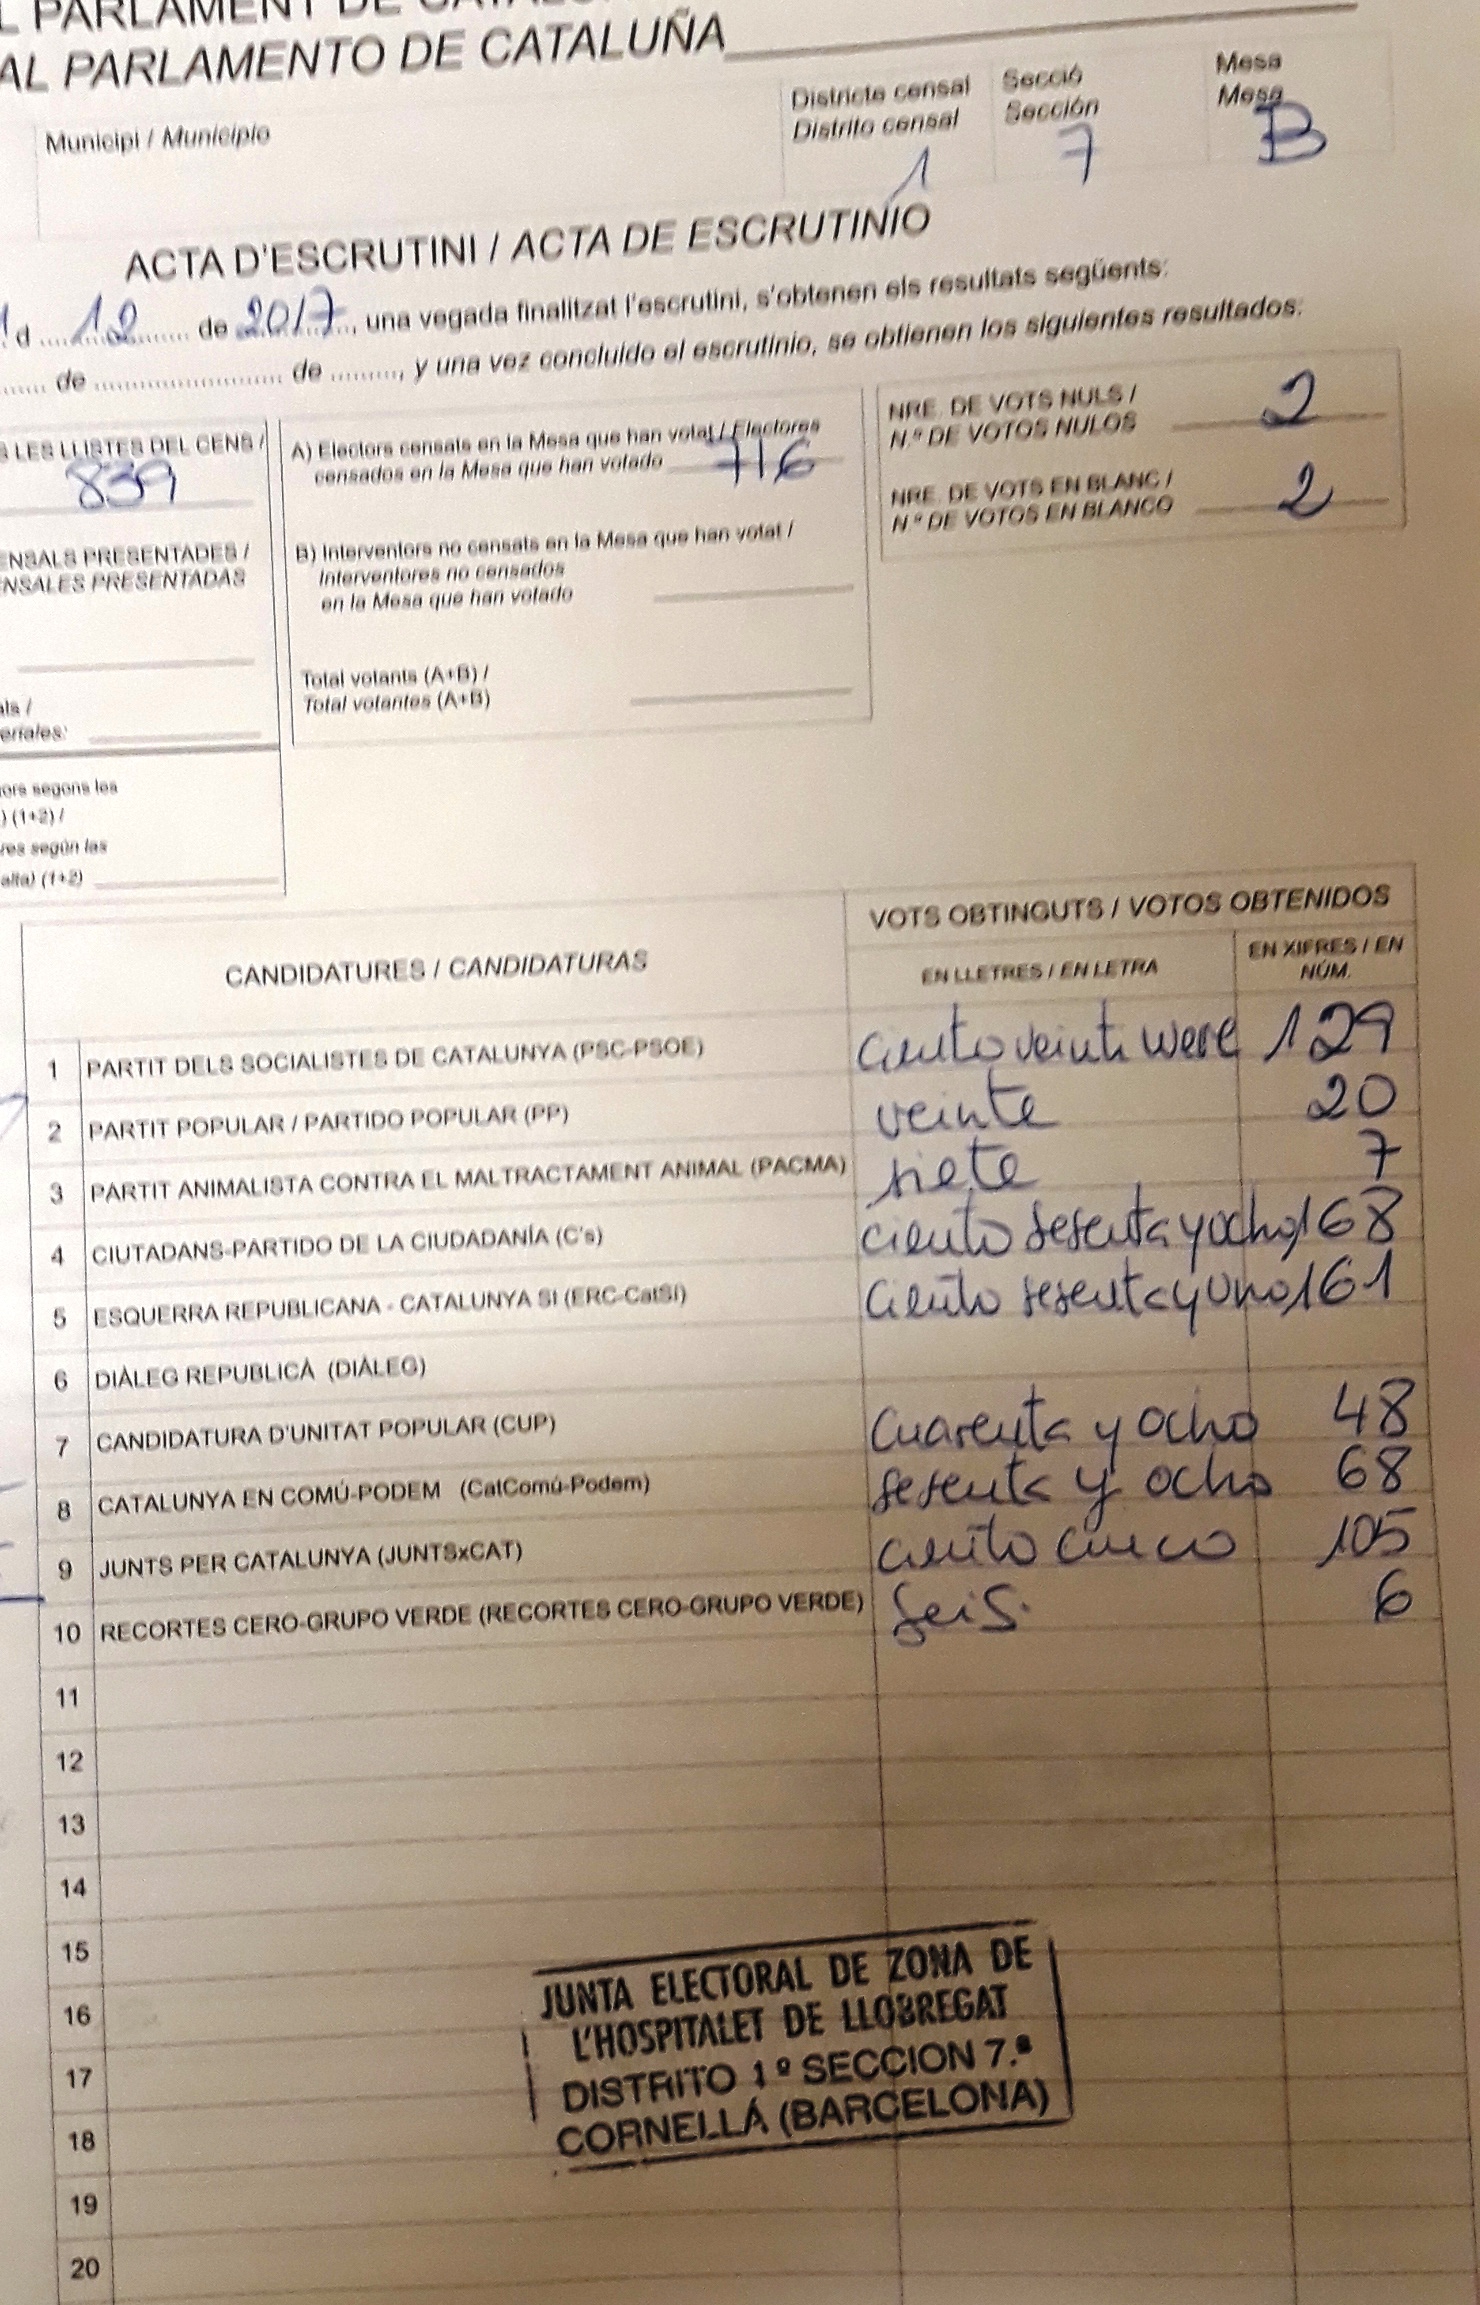 AL PARLAMENTO DE CATALUÑA
Municipi / Municipio
Districte censal
Distrito censal
1
Secció
Sección
7
Mesa
Mesa
B
ACTA D'ESCRUTINI / ACTA DE ESCRUTINIO
d ... 12 ... de 2017, una vegada finalitzat l'escrutini, s'obtenen els resultats següents:
de ... de ..., y una vez concluido el escrutinio, se obtienen los siguientes resultados:
LES LLISTES DEL CENS /
839
ENSALS PRESENTADES /
ENSALES PRESENTADAS
als /
eriales:
ors segons les
) (1+2) /
res según las
alta) (1+2)
A) Electors censats en la Mesa que han votat / Electores
censados en la Mesa que han votado 716
B) Interventors no censats en la Mesa que han votat /
Interventores no censados
en la Mesa que han votado
Total votants (A+B) /
Total votantes (A+B)
NRE. DE VOTS NULS /
N.º DE VOTOS NULOS 2
NRE. DE VOTS EN BLANC /
N.º DE VOTOS EN BLANCO 2
CANDIDATURES / CANDIDATURAS
VOTS OBTINGUTS / VOTOS OBTENIDOS
EN LLETRES / EN LETRA
EN XIFRES / EN
NÚM.
1 PARTIT DELS SOCIALISTES DE CATALUNYA (PSC-PSOE) ciento veinti nueve 129
2 PARTIT POPULAR / PARTIDO POPULAR (PP) veinte 20
3 PARTIT ANIMALISTA CONTRA EL MALTRACTAMENT ANIMAL (PACMA) siete 7
4 CIUTADANS-PARTIDO DE LA CIUDADANÍA (C's) ciento sesenta y ocho 168
5 ESQUERRA REPUBLICANA - CATALUNYA SI (ERC-CatSí) ciento sesenta y uno 161
6 DIÀLEG REPUBLICÀ (DIÀLEG)
7 CANDIDATURA D'UNITAT POPULAR (CUP) cuarenta y ocho 48
8 CATALUNYA EN COMÚ-PODEM (CatComú-Podem) sesenta y ocho 68
9 JUNTS PER CATALUNYA (JUNTSxCAT) ciento cinco 105
10 RECORTES CERO-GRUPO VERDE (RECORTES CERO-GRUPO VERDE) seis. 6
11
12
13
14
15
16
17
18
19
20
JUNTA ELECTORAL DE ZONA DE
L'HOSPITALET DE LLOBREGAT
DISTRITO 1º SECCION 7.ª
CORNELLÁ (BARCELONA)